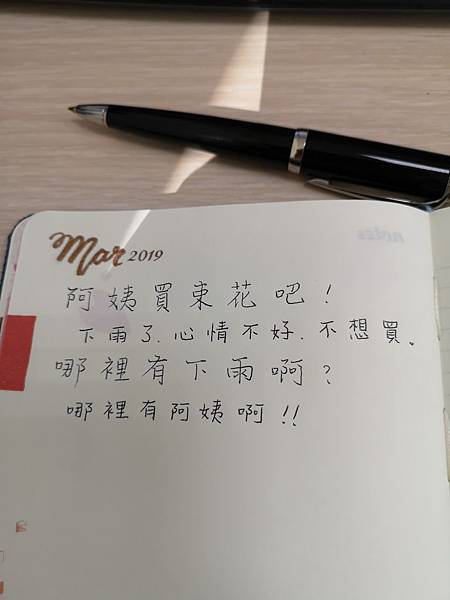 Mar 2019
阿姨買束花吧！
下雨了.心情不好.不想買。
哪裡有下雨啊？
哪裡有阿姨啊!!
notes